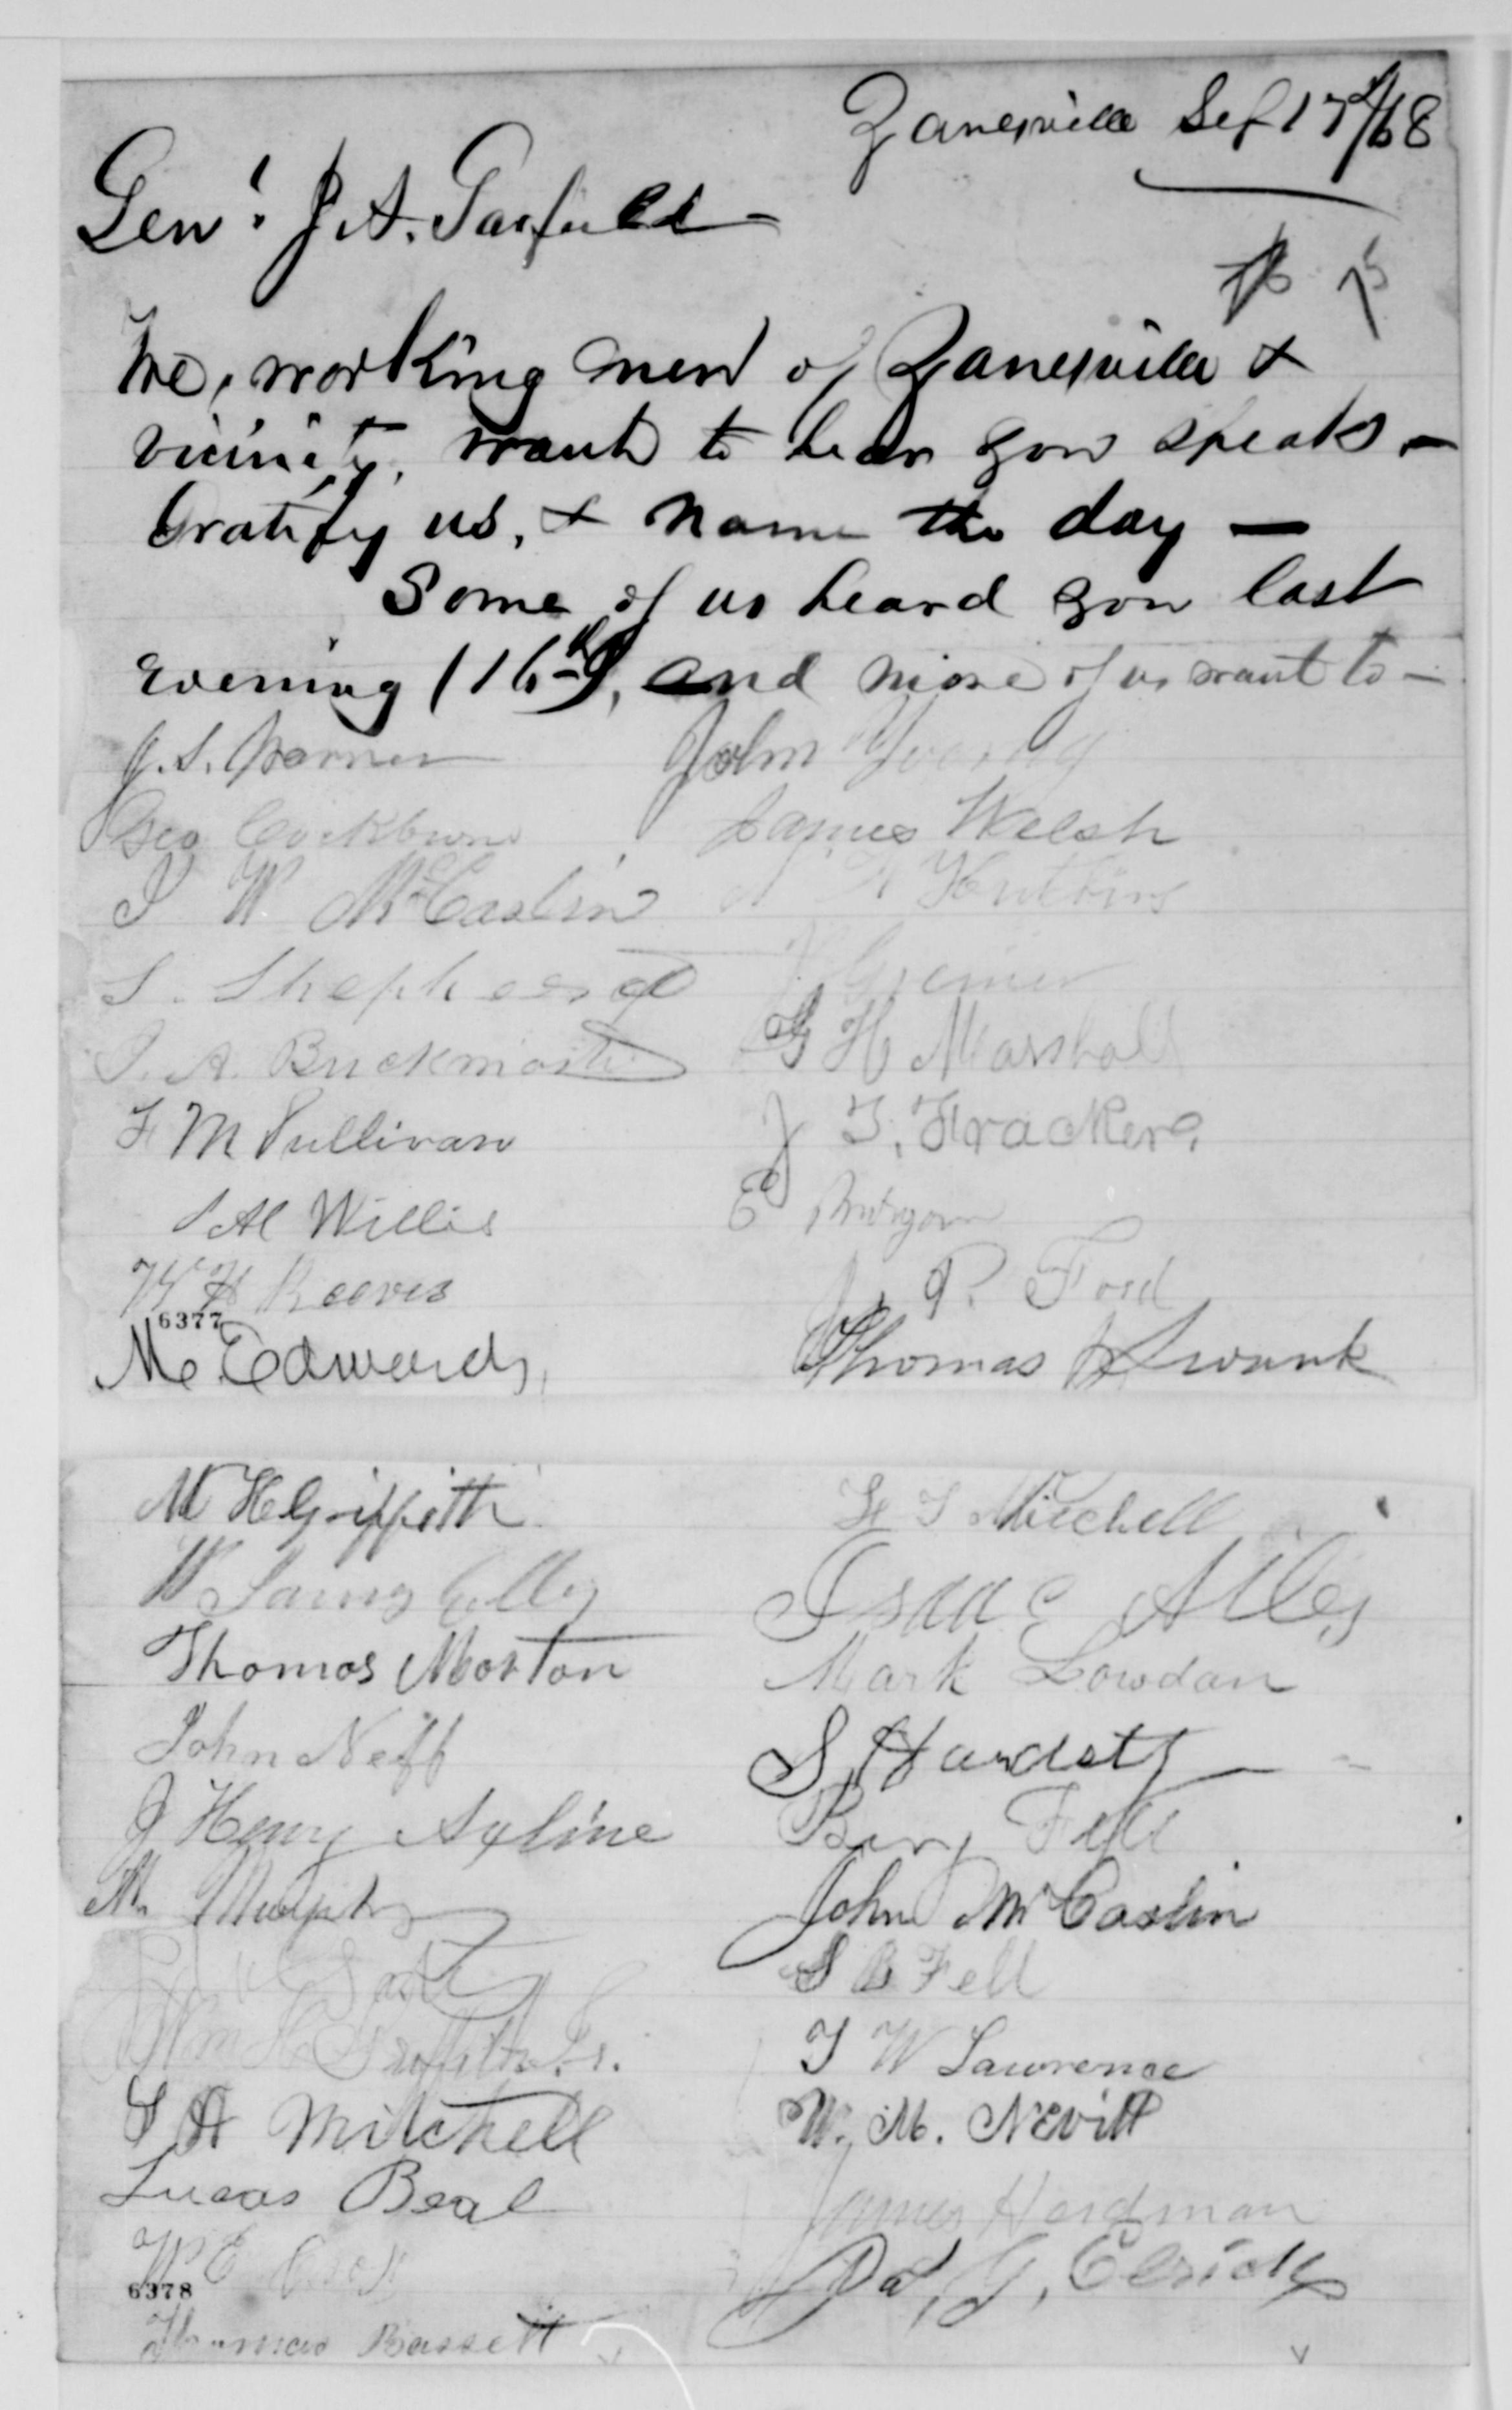 Zanesville Sep 17th/68
Gen'l J. A. Garfield
We, working men of Zanesville &
vicinity, want to hear you speak —
Gratify us, & name the day —
Some of us heard you last
evening (16th), and more of us want to —
J. S. Warner
John Young
Geo Cockburn
James Welsh
J W McCaslin
S. Shepheard
Greiner
J. A. Buckmaster
G H Marshall
F M Sullivan
J T. Fracker
Willis
E
W H Reeves
J. P. Ford
6377
Mc Edwards
Thomas Swank
W H Griffith
H S Mitchell
W
Isaac Alley
Thomas Morton
Mark Lowdan
John Neff
S Hardsty
J Henry Axline
Benj Fell
M. Murphy
John McCaslin
S B Fell
Wm H Griffith Jr.
T W Lawrence
S A Mitchell
W. M. Nevitt
Lucas Beal
James Herdman
W E
G. Elrick
6378
Thomas Bassett